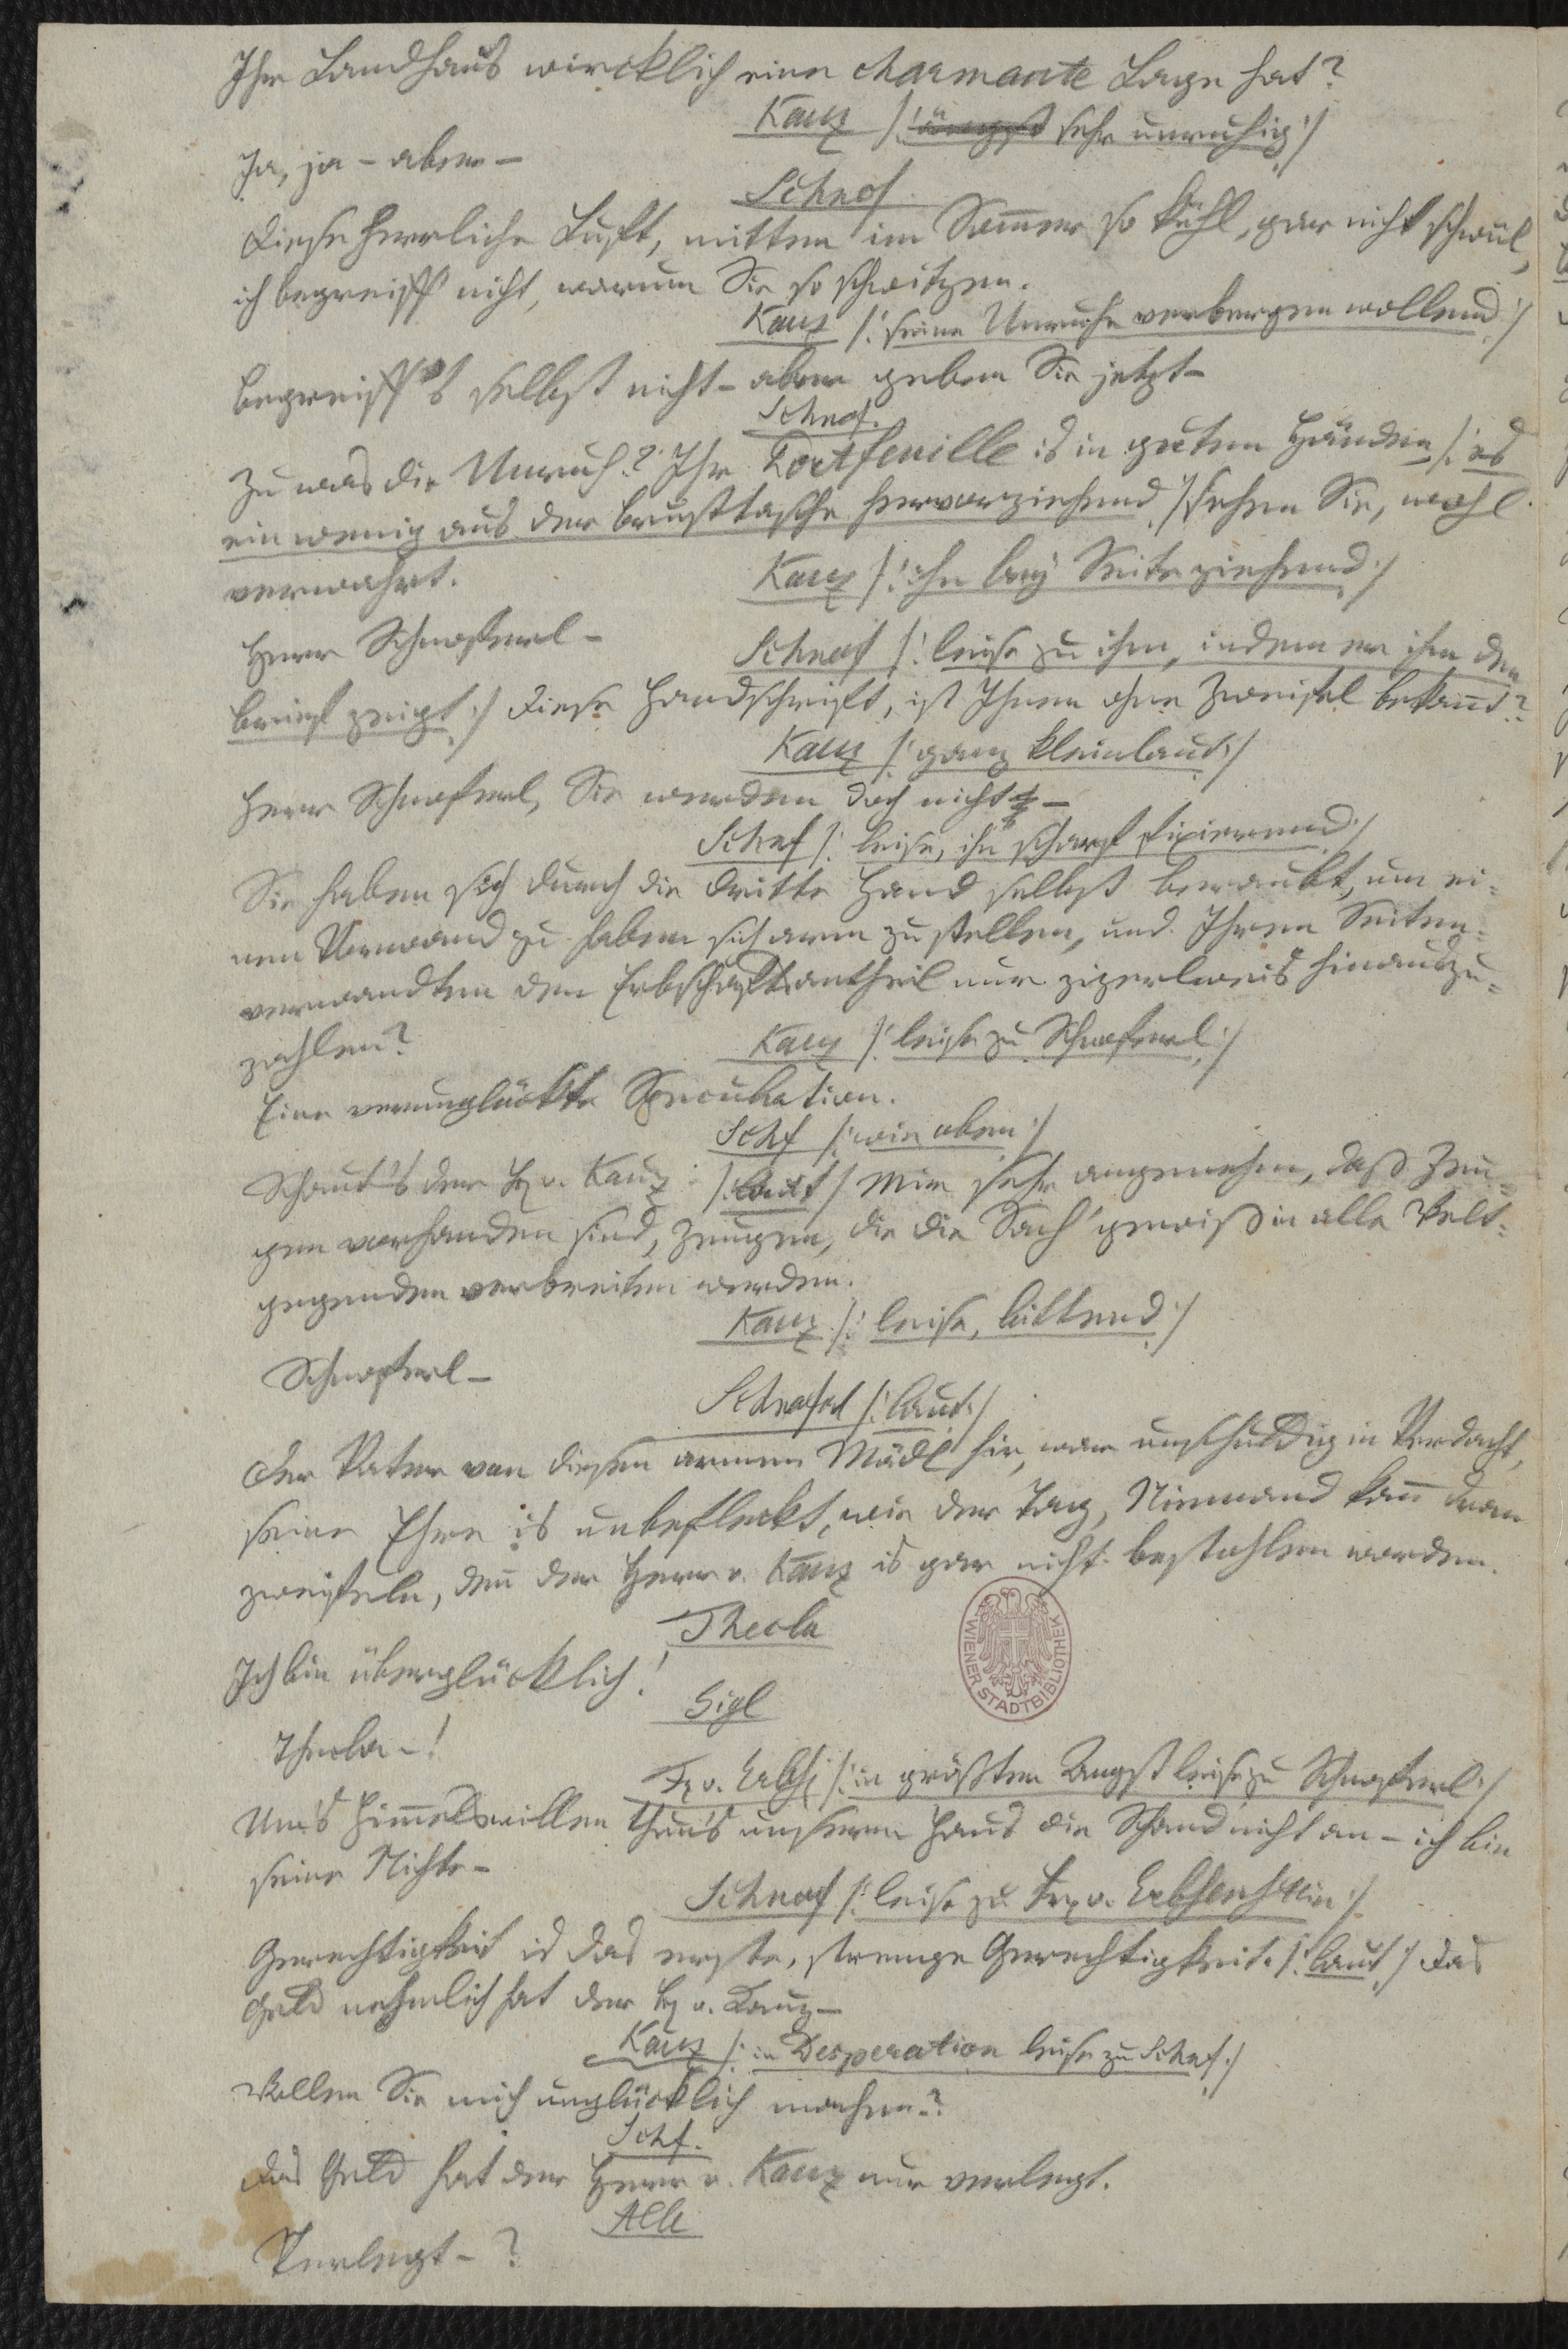 Ihr Landhaus wircklich eine charmante Lage hat?
Kauz /: ängst sehr unruhig :/
Ja, ja – aber –
Schnof.
Diese herrliche Luft, mitten im Som̄er so kühl, gar nicht schwül,
ich begreiff nicht, warum Sie so schwitzen.
Kauz /: seine Unruhe verbergen wollend :/
Begreiff's selbst nicht – aber geben Sie jetzt –
Schnof.
Zu was die Unruh? Ihr Portfeuille is in guten Händen, /: es
ein wenig aus der Brusttasche hervorziehend :/ sehen Sie, wohl
verwahrt.
Kauz /: ihn bey Seite ziehend :/
Herr Schnoferl –
Schnof /: leise zu ihm, indem er ihm den
Brief zeigt :/ Diese Handschrift, ist Ihnen ohne Zweifel bekan̄t?
Kauz /: ganz kleinlaut :/
Herr Schnoferl, Sie werden doch nicht –
Schnf /: leise, ihn scharf fixierend :/
Sie haben sich durch die dritte Hand selbst beraubt, um ei-
nen Vorwand zu haben sich arm zu stellen, und Ihren Seiten-
verwandten den Erbschaftsantheil nur zizerlweis hinauszu-
zahlen?
Kauz /: leise zu Schnoferl :/
Eine verunglückte Speculation.
Schf /: wie oben :/
Schaut's der H v. Kauz /: laut / Mir sehr angenehm, daß Zeu-
gen vorhanden sind, Zeugen, die die Sach' gewiß in alle Welt-
gegenden verbreiten werden.
Kauz /: leise, bittend :/
Schnoferl –
Schnoferl /: laut :/
Der Vater von diesen armen Mädl hir, war unschuldig in Verdacht,
seine Ehre is unbefleckt, wie der Tag, Niemand kan̄ dran
zweifeln, den̄ der Herr v. Kauz is gar nicht bestohlen worden.
Thecla
Ich bin überglücklich!
Sigl
Thecla –!
WIENER STADTBIBLIOTHEK
Fr v. Erbs /: in größten Angst leise zu Schnoferl :/
Um's Him̄elswillen thun's unserm Haus die Schand nicht an – ich bin
seine Nichte –
Schnof /: leise zu Fr v. Erbsenstein :/
Gerechtigkeit is das erste, strenge Gerechtigkeit. /: laut :/ Das
Geld nehmlich hat der H v. Kauz –
Kauz /: in Desperation leise zu Schnf :/
Wollen Sie mich unglücklich machen?
Schf.
Das Geld hat der Herr v. Kauz nur verlegt.
Alle
Verlegt – ?